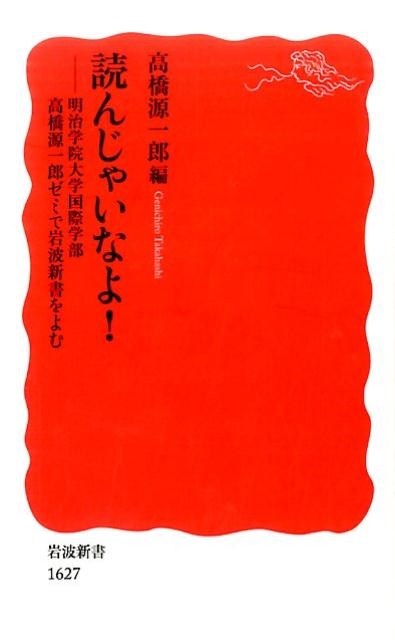 高橋源一郎編
Genichiro Takahashi
読んじゃいなよ!
——明治学院大学国際学部
高橋源一郎ゼミで岩波新書をよむ
岩波新書
1627